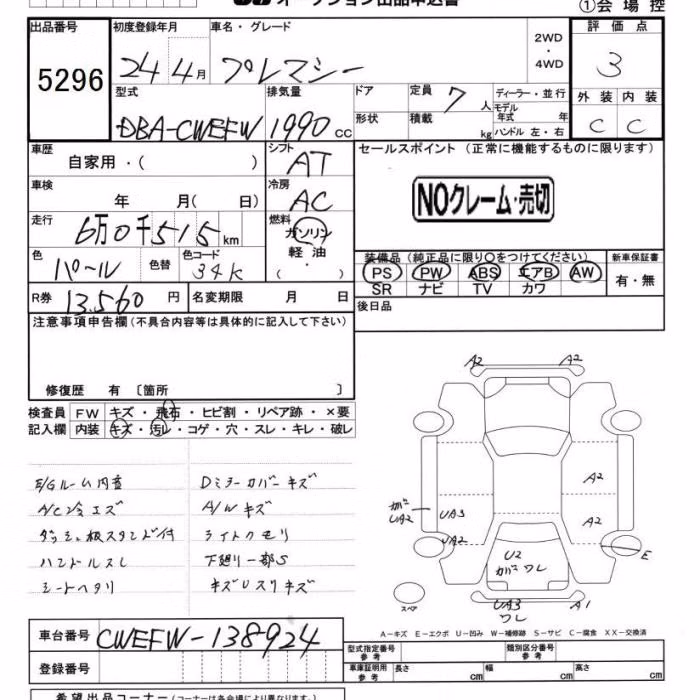 オークション出品申込書
①会場控
出品番号
5296
初度登録年月
24年4月
車名・グレード
プレマシー
2WD
・
4WD
評価点
3
型式
DBA-CWEFW
排気量
1990 CC
ドア
形状
定員 7 人
積載 kg
ディーラー・並行
モデル年式 年
ハンドル 左・右
外装 内装
C C
車歴
自家用・( )
シフト
AT
セールスポイント (正常に機能するものに限ります)
NOクレーム・売切
車検
年 月( 日)
冷房
AC
走行
6万0千515 km
燃料
ガソリン
軽油
( ・ )
色
パール
色替
色コード
34K
装備品(純正品に限り〇をつけてください)
PS PW ABS エアB AW
SR ナビ TV カワ
新車保証書
有・無
R券 13,560 円
名変期限 月 日
後日品
注意事項申告欄(不具合内容等は具体的に記入して下さい)
修復歴 有 〔箇所 〕
検査員 FW キズ・飛石・ヒビ割・リペア跡・×要
記入欄 内装 キズ・汚レ・コゲ・穴・スレ・キレ・破レ
E/Gルーム内音
ダッシュ板スタンド付
ハンドルスレ
シートヘタリ
Dミラーカバーキズ
A/Wキズ
ライトクモリ
下廻り一部S
キズUスリキズ
A2 A2
A2
カベ UA2
UA3
A2
UA2
U2
カベ ワレ
E
スペア
UA3
ワレ
A1
A-キズ E-エクボ U-凹み W-補修跡 S-サビ C-腐食 XX-交換済
車台番号 CWEFW-138924
登録番号
型式指定番号 参考
類別区分番号 参考
車庫証明用 参考 長さ cm 幅 cm 高さ cm
希望出品コーナー